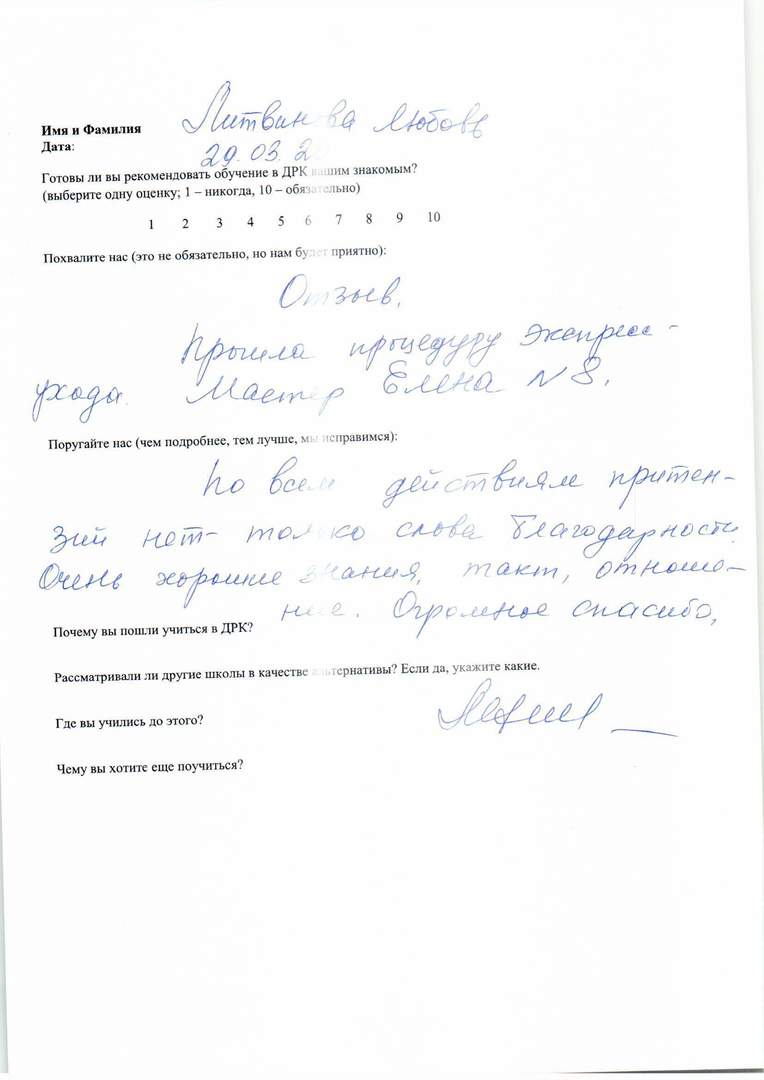 Имя и Фамилия Литвинова Любовь
Дата: 29.03.20
Готовы ли вы рекомендовать обучение в ДРК вашим знакомым?
(выберите одну оценку; 1 – никогда, 10 – обязательно)
1 2 3 4 5 6 7 8 9 10
Похвалите нас (это не обязательно, но нам будет приятно):
Отзыв.
Прошла процедуру экспресс-
ухода. Мастер Елена N 8.
Поругайте нас (чем подробнее, тем лучше, мы исправимся):
По всем действиям притен-
зий нет- только слова благодарности.
Очень хорошие знания, такт, отноше-
ние. Огромное спасибо,
Почему вы пошли учиться в ДРК?
Рассматривали ли другие школы в качестве альтернативы? Если да, укажите какие.
Где вы учились до этого?
Чему вы хотите еще поучиться?